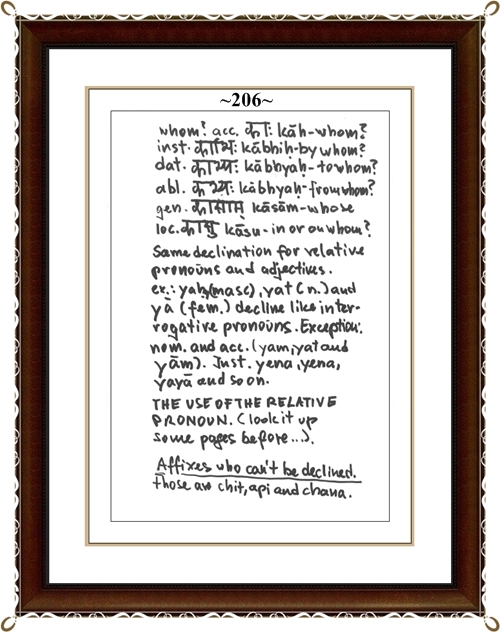 ~206~
whom? acc. काः kāh-whom?
inst. काभिः kābhiḥ-by whom?
dat. काभ्यः kābhyaḥ-to whom?
abl. काभ्यः kābhyaḥ-from whom?
gen. कासाम् kāsām-whose
loc. कासु kāsu-in or on whom?
Same declination for relative
pronouns and adjectives.
ex.: yaḥ(masc), yat (n.) and
yā (fem.) decline like inter-
rogative pronouns. Exception:
nom. and acc. (yam, yat and
yām). Inst. yena, yena,
yayā and so on.
THE USE OF THE RELATIVE
PRONOUN. (look it up
some pages before...).
Affixes who can't be declined.
Those are chit, api and chana.